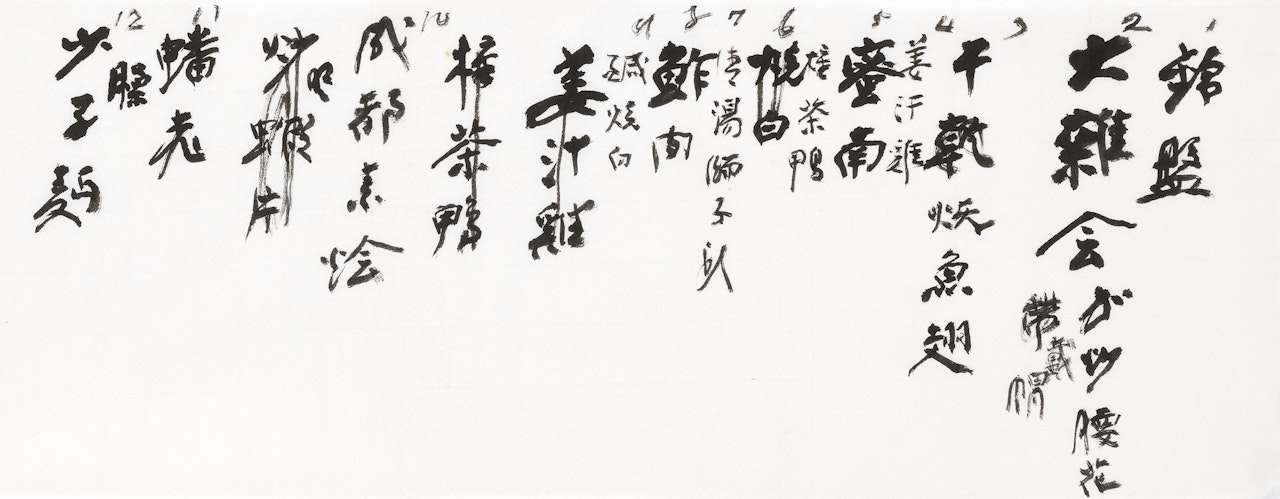 1
盤
2
大雜会 炒腰花
帶戴帽
3
干 燒魚翅
4
姜汁雞
5
蜜南
6
燒白
樟茶鴨
7
清湯獅子
8
鮓肉
9
鹹燒白
姜汁雞
樟茶鴨
10
成都素烩
炒明蝦片
11
蟠老
12
臊
少子麵